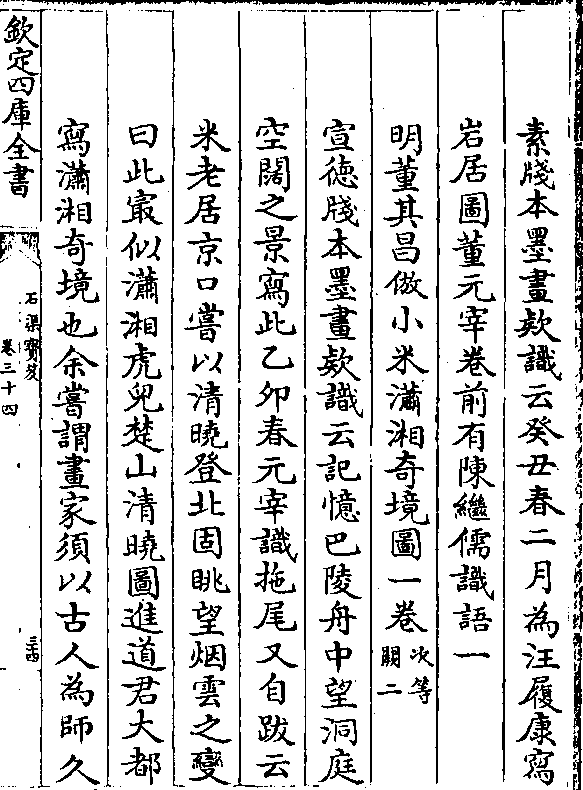 素牋本墨畫欵識云癸丑春二月為汪履康寫
岩居圖董元宰卷前有陳繼儒識語一
明董其昌倣小米瀟湘奇境圖一卷次等闕二
宣徳牋本墨畫欵識云記憶巴陵舟中望洞庭
空闊之景寫此乙卯春元宰識拖尾又自跋云
米老居京口嘗以清曉登北固眺望烟雲之變
曰此㝡似瀟湘虎兒楚山清曉圖進道君大都
寫瀟湘奇境也余嘗謂畫家須以古人為師久
欽定四庫全書
石渠寳笈
卷三十四
三四